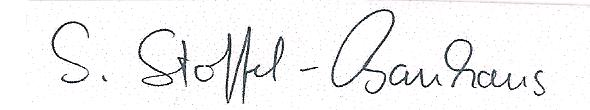 S. Stoffel-Banhans